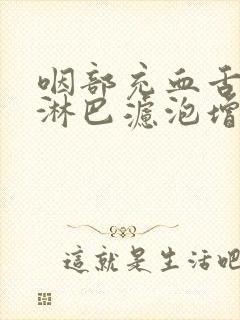 咽部充血舌
淋巴濾泡增
這就是生活吧